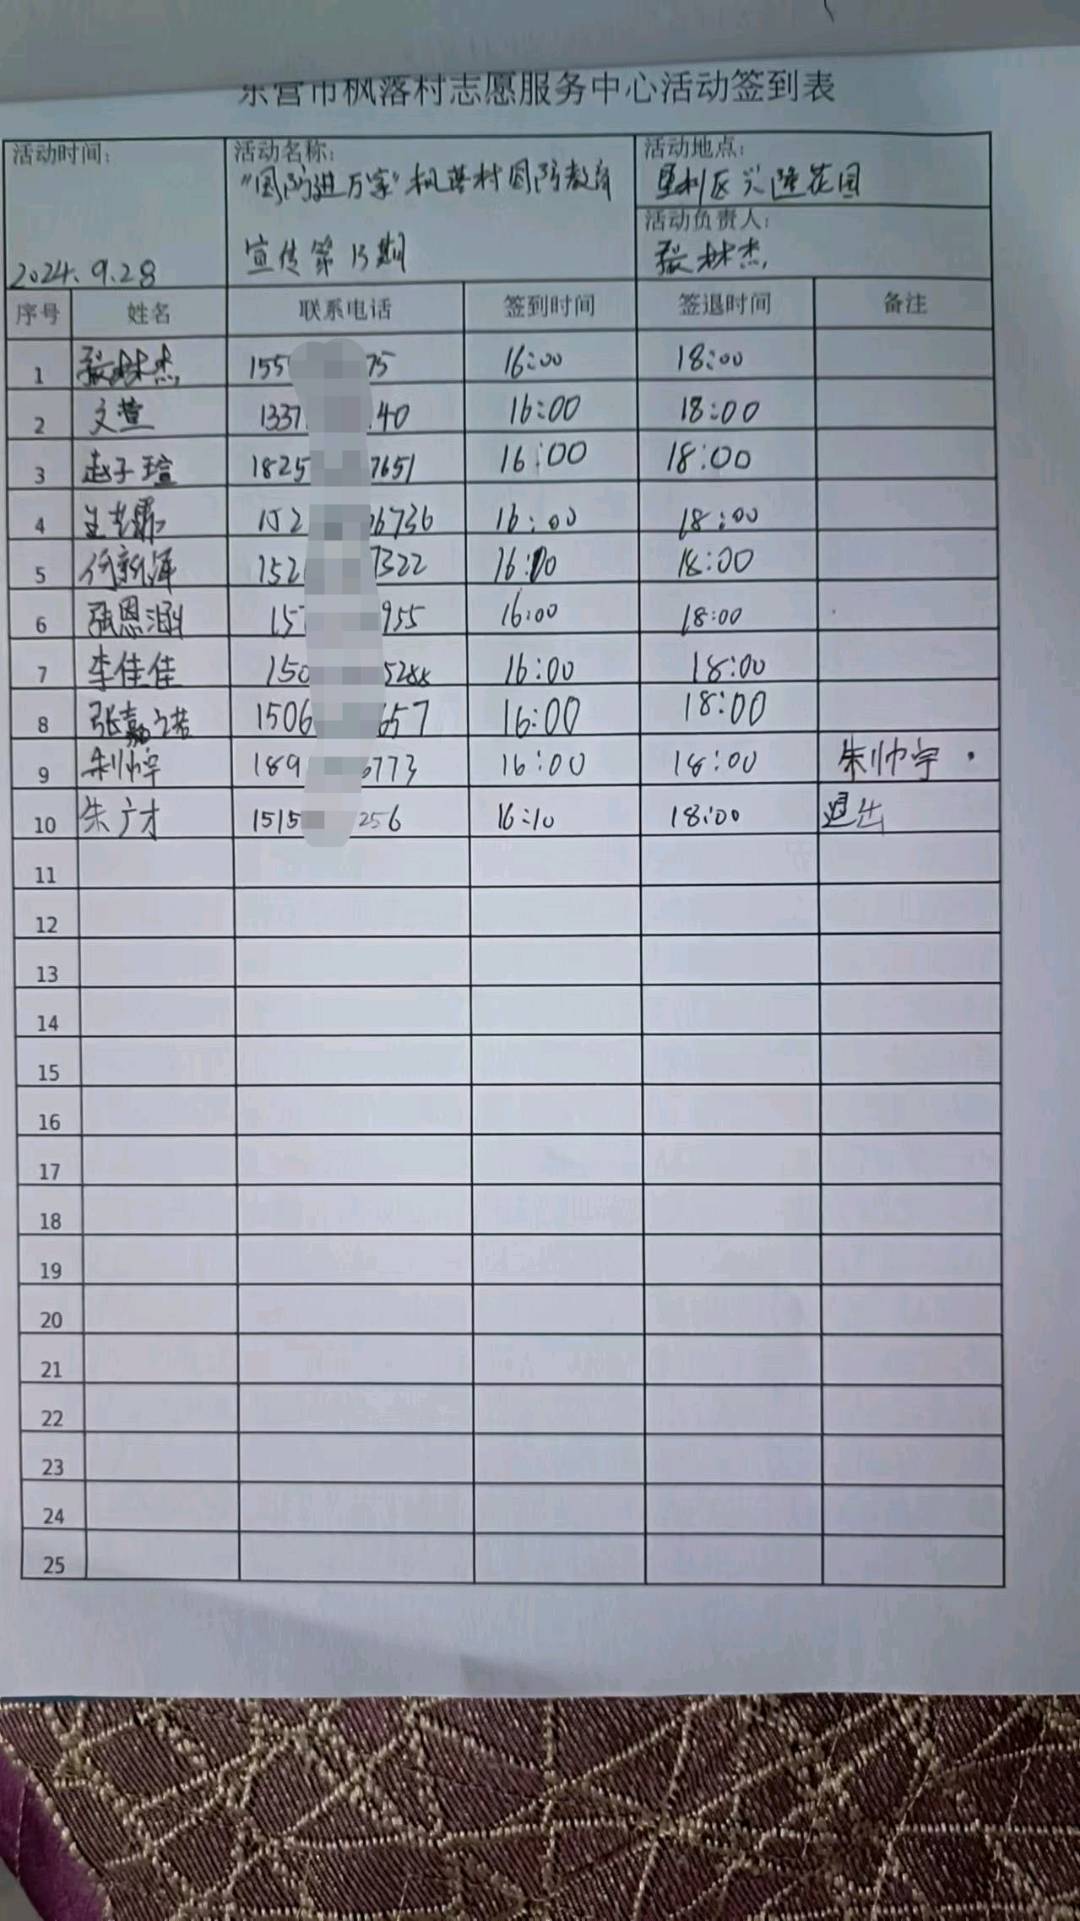 东营市枫落村志愿服务中心活动签到表
活动时间: 2024.9.28
活动名称: "国防进万家"枫落村国防教育
宣传第13期
活动地点: 垦利区兴隆花园
活动负责人: 张林杰
序号 姓名 联系电话 签到时间 签退时间 备注
1 张林杰 155 75 16:00 18:00
2 文萱 1337 40 16:00 18:00
3 赵子瑄 1825 7651 16:00 18:00
4 152 6736 16:00 18:00
5 152 7322 16:00 18:00
6 张恩涵 157 955 16:00 18:00
7 李佳佳 150 5288 16:00 18:00
8 张嘉诺 1506 657 16:00 18:00
9 朱帅宇 189 6773 16:00 18:00 朱帅宇
10 朱广才 1515 256 16:10 18:00 退出
11
12
13
14
15
16
17
18
19
20
21
22
23
24
25